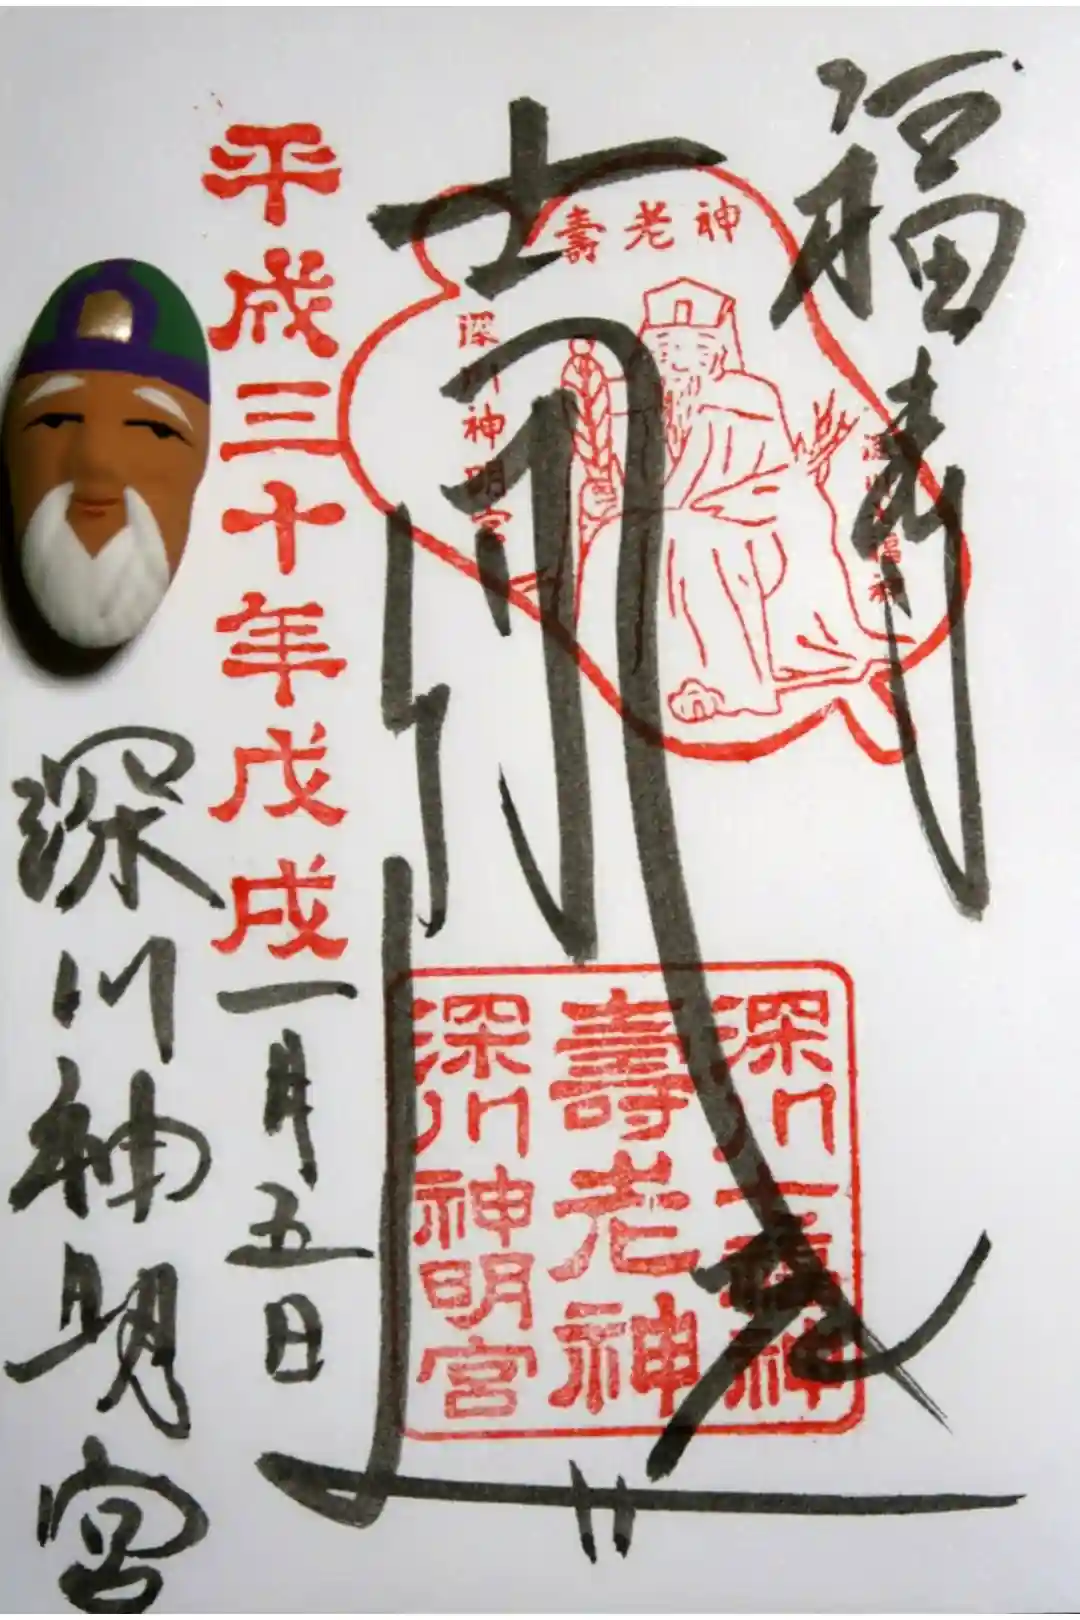 福
壽老神
深川七福神
深川神明宮
深川七福神
壽老神
深川神明宮
平成三十年戊戌一月五日
深川神明宮